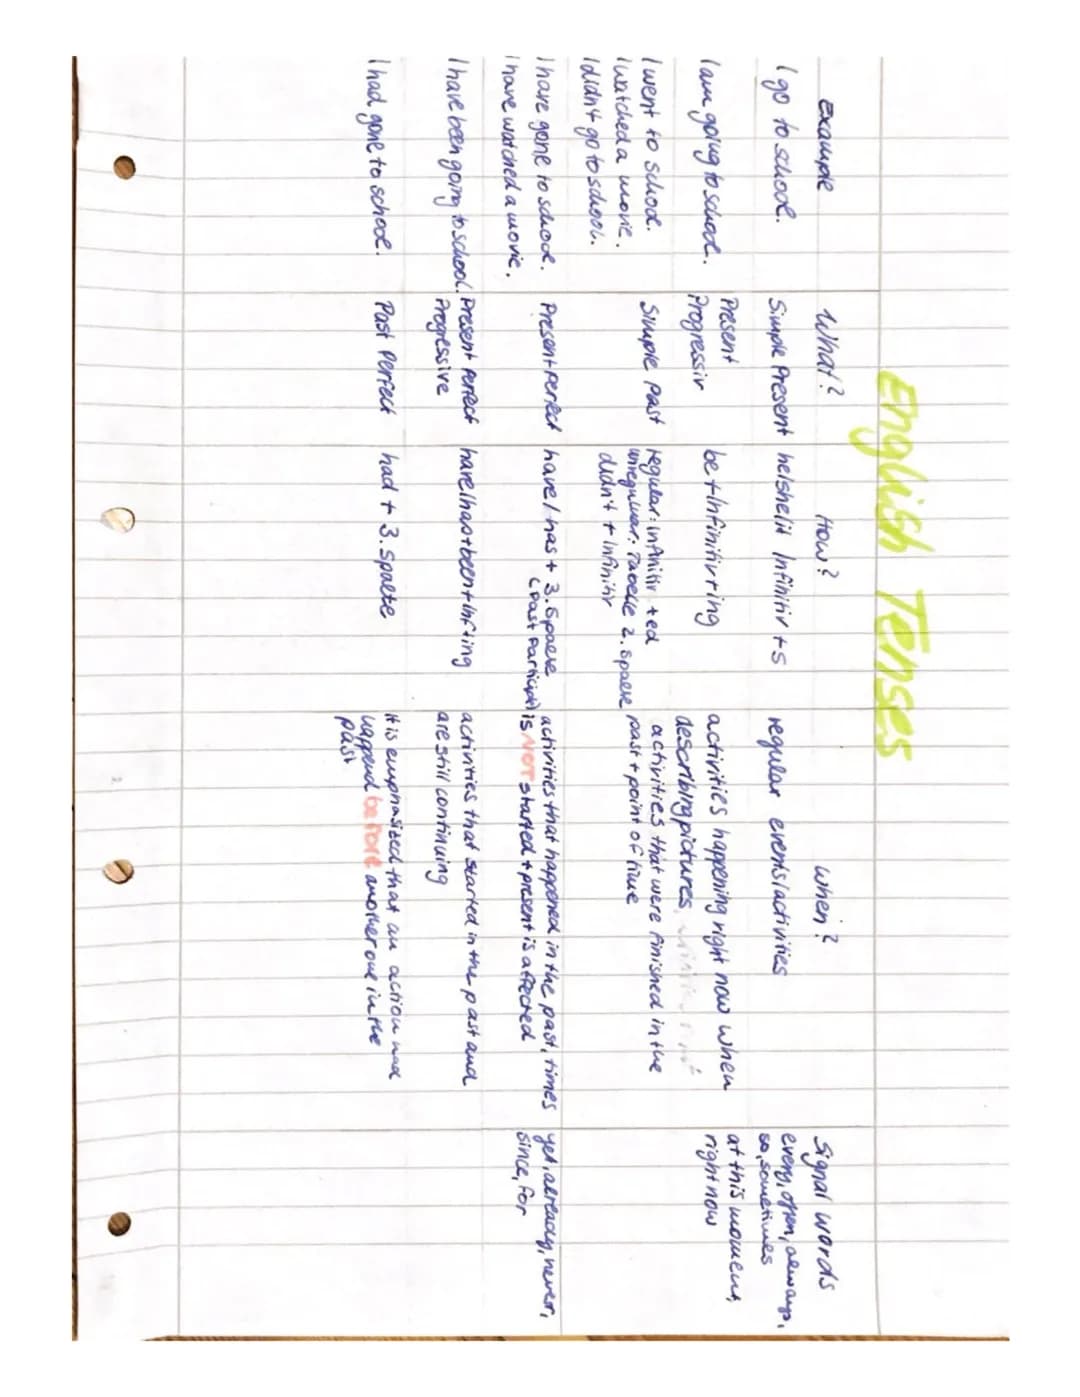 English Tenses
Example What? How? when? Signal words
I go to school. Simple Present he/she/it Infinitiv +s regular events/activities every, often, always,
so, sometimes
I am going to school. Present be+Infinitiv+ing activities happening right now when at this moment,
Progressiv describing pictures right now
I went to school. Simple Past regular: infinitiv + ed activities that were finished in the
I watched a movie. unregular: Tabelle 2. Spalte past + point of time
I didn't go to school. didn't + Infinitiv
I have gone to school. Present Perfect have/has + 3. Spalte activities that happened in the past, times yet, already, never,
I have watched a movie. (past participle) is NOT started + present is affected since, for
I have been going to school. Present Perfect have/has+been+Inf+ing activities that started in the past and
Progressive are still continuing
I had gone to school. Past Perfect had + 3. Spalte it is emphasized that an action had
happend before another one in the
past